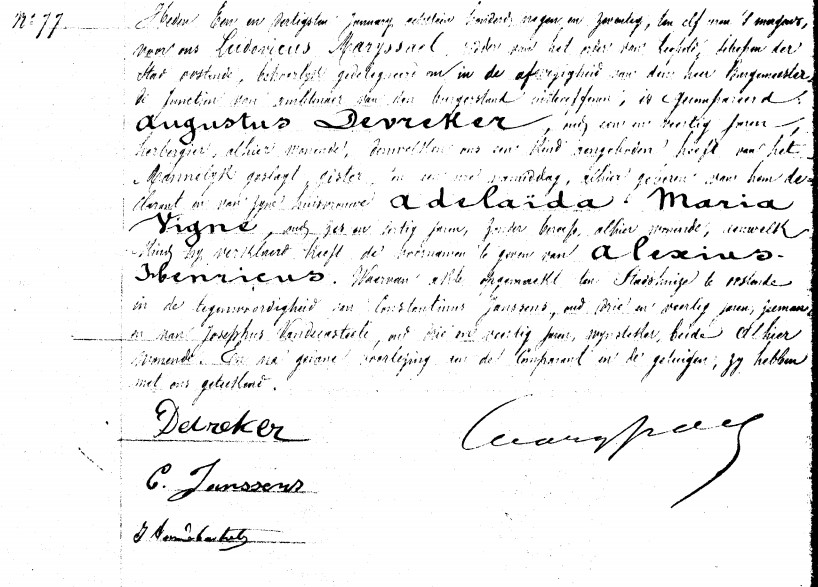 No 77.
Heden Een en dertigsten January, achttien honderd negen en zeventig, ten elf uren 's morgens,
voor ons Ludovicus Maryssael, ridder van het order van Leopold, schepen der
Stad oostende, behoorlyk gedelegueerd om in de afwezigheid van den heer Burgemeester
de functien van ambtenaar van den burgerstand uitteoeffenen, is gecompareerd:
Augustus Devreker, oud een en veertig jaren,
herbergier, alhier wonende, denwelken ons een kind aengeboden heeft van het
Mannelyk geslagt, gister, ten een ure namiddag, alhier geboren van hem de-
clarant en van zyne huisvrouwe Adelaïda Maria
Vigne, oud zes en dertig jaren, zonder beroep, alhier wonende, aenwelk
Kind hy verklaerd heeft de voornamen te geven van Alexius-
Henricus. Waervan akte opgemaekt ten Stadshuize te oostende
in de tegenwoordigheid van Constantinus Janssens, oud drie en veertig jaren, zeeman
en van Josephus Vandecasteele, oud drie en veertig jaren, wynsteker, beide alhier
wonende. En na gedane voorlezing aen de Comparant en de getuigen, zy hebben
met ons geteekend.
Devreker
Maryssael
C. Janssens
J Vandecasteele